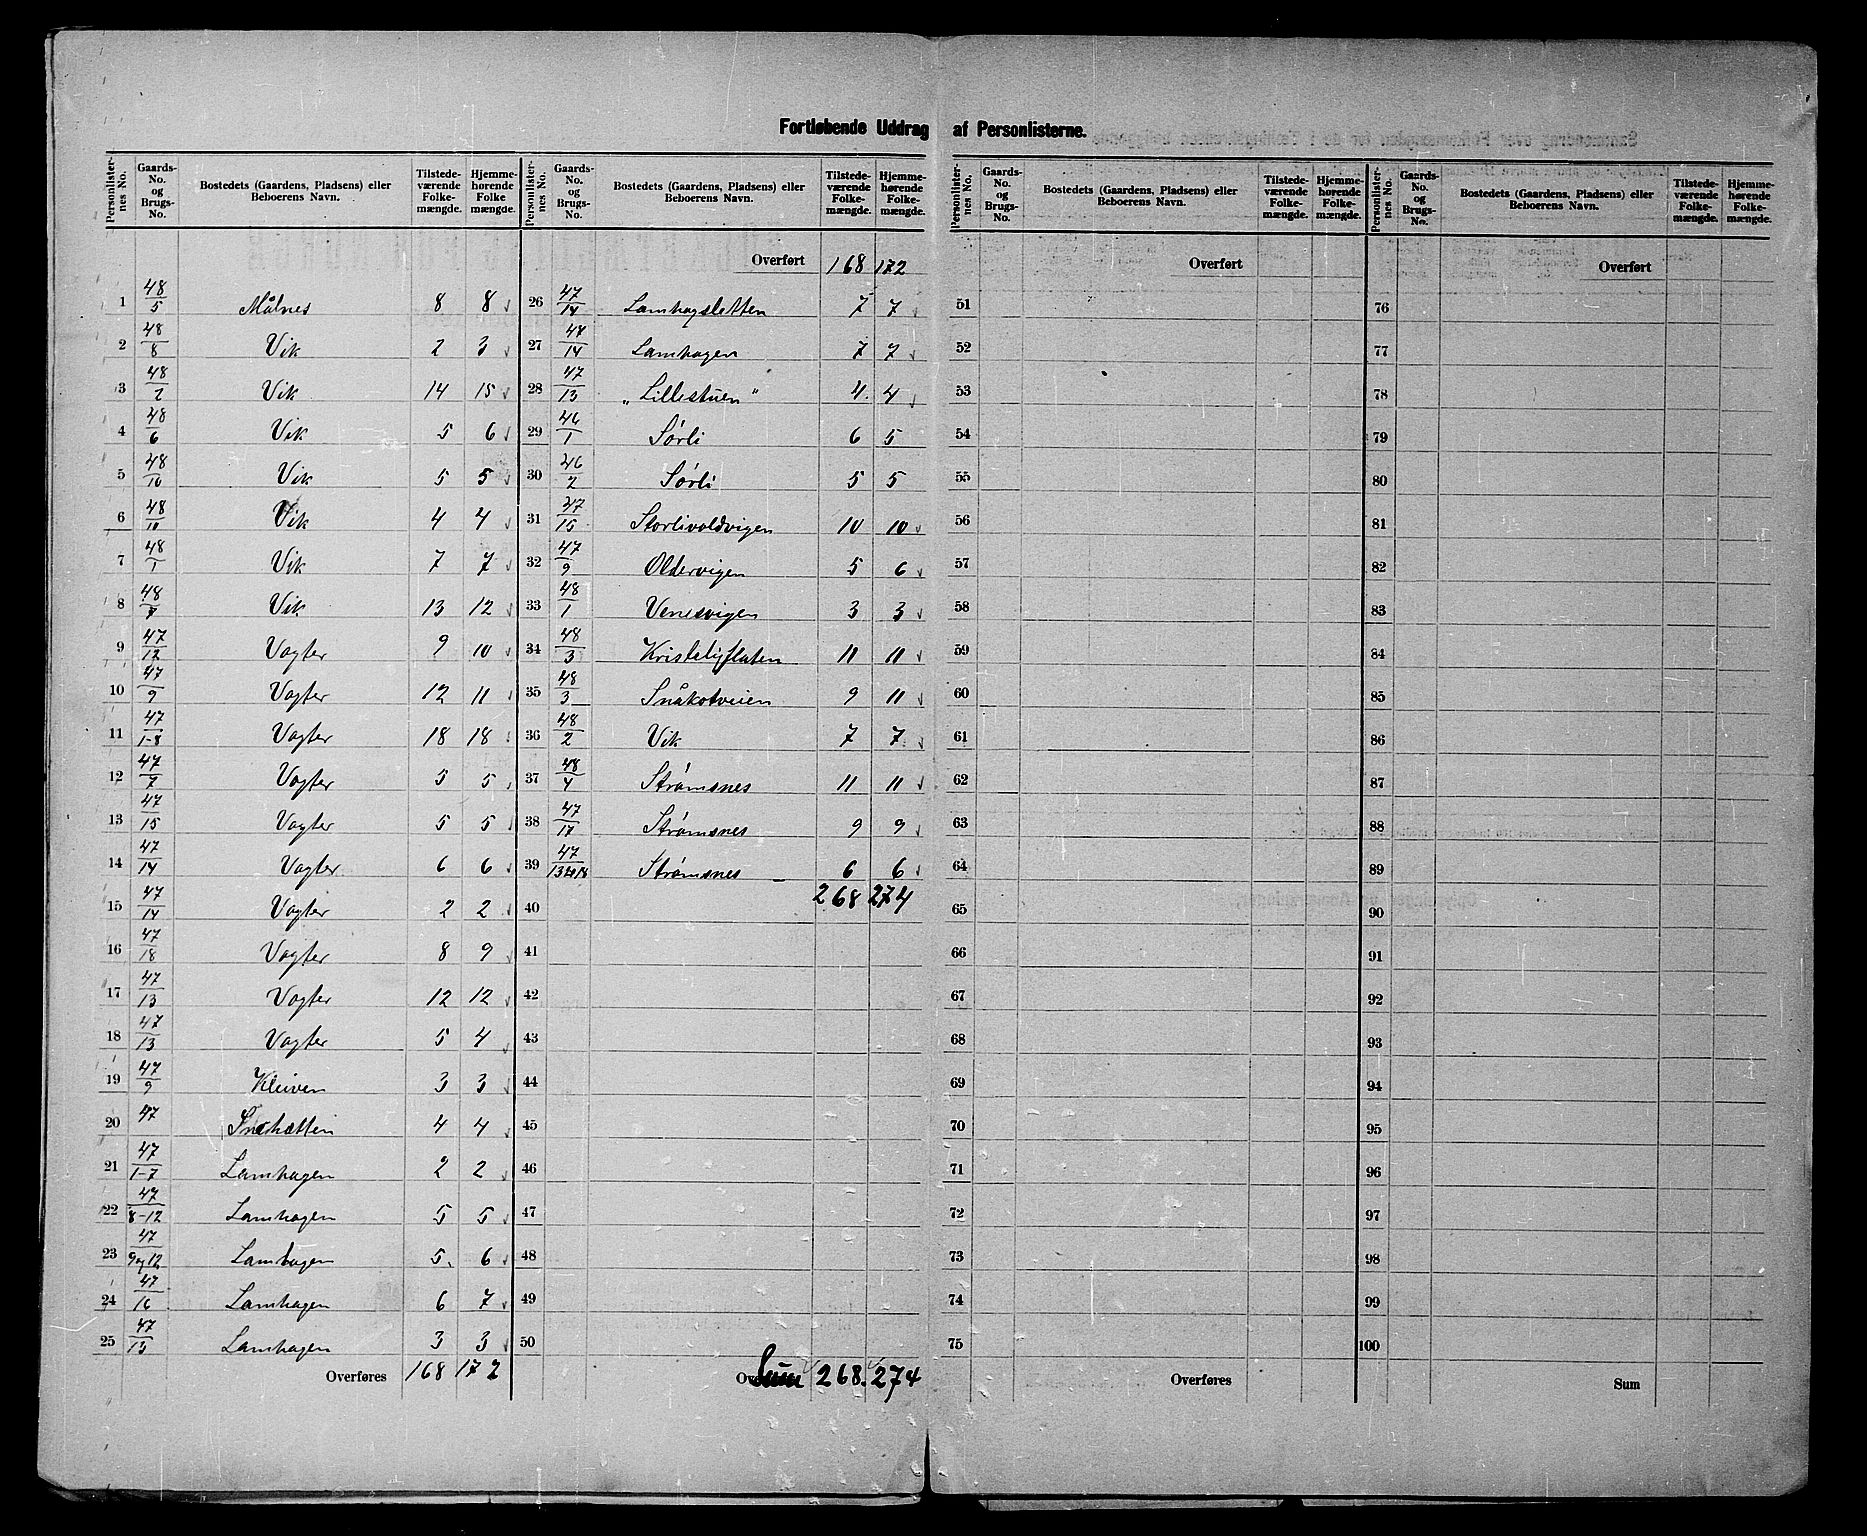 Fortløbende Uddrag af Personlisterne.
Personlister-nes No. | Gaards-No. og Brugs-No. | Bostedets (Gaardens, Pladsens) eller Beboerens Navn. | Tilstede-værende Folke-mængde. | Hjemme-hørende Folke mængde.
1 | 48/5 | Målnes | 8 | 8
2 | 48/8 | Vik | 2 | 3
3 | 48/2 | Vik | 14 | 15
4 | 48/6 | Vik | 5 | 6
5 | 48/10 | Vik | 5 | 5
6 | 48/10 | Vik | 4 | 4
7 | 48/1 | Vik | 7 | 7
8 | 48/7 | Vik | 13 | 12
9 | 47/12 | Vagter | 9 | 10
10 | 47/9 | Vagter | 12 | 11
11 | 47/1-8 | Vagter | 18 | 18
12 | 47/7 | Vagter | 5 | 5
13 | 47/15 | Vagter | 5 | 5
14 | 47/14 | Vagter | 6 | 6
15 | 47/14 | Vagter | 2 | 2
16 | 47/18 | Vagter | 8 | 9
17 | 47/13 | Vagter | 12 | 12
18 | 47/13 | Vagter | 5 | 4
19 | 47/9 | Kleiven | 3 | 3
20 | 47 | Snehætten | 4 | 4
21 | 47/1-7 | Lamhagen | 2 | 2
22 | 47/8-12 | Lamhagen | 5 | 5
23 | 47/9 og 12 | Lamhagen | 5 | 6
24 | 47/16 | Lamhagen | 6 | 7
25 | 47/13 | Lamhagen | 3 | 3
Overføres 168 172
Personlister-nes No. | Gaards-No. og Brugs-No. | Bostedets (Gaardens, Pladsens) eller Beboerens Navn. | Tilstede-værende Folke-mængde. | Hjemme-hørende Folke-mængde.
Overført 168 172
26 | 47/14 | Lamhagsletten | 7 | 7
27 | 47/14 | Lamhagen | 7 | 7
28 | 47/13 | „Lillestuen" | 4 | 4
29 | 46/1 | Sørli | 6 | 5
30 | 46/2 | Sørli | 5 | 5
31 | 47/15 | Storlivoldvigen | 10 | 10
32 | 47/9 | Oldervigen | 5 | 6
33 | 48/1 | Venesvigen | 3 | 3
34 | 48/3 | Kristeligflaten | 11 | 11
35 | 48/3 | Snåkotveien | 9 | 11
36 | 48/2 | Vik | 7 | 7
37 | 48/4 | Strømsnes | 11 | 11
38 | 47/17 | Strømsnes | 9 | 9
39 | 47/13 og 18 | Strømsnes | 6 | 6
268 274
40
41
42
43
44
45
46
47
48
49
50
Sum 268. 274
Personlister-nes No. | Gaards-No. og Brugs-No. | Bostedets (Gaardens, Pladsens) eller Beboerens Navn. | Tilstede-værende Folke-mængde. | Hjemme-hørende Folke-mængde.
Overført
51
52
53
54
55
56
57
58
59
60
61
62
63
64
65
66
67
68
69
70
71
72
73
74
75
Overføres
Personlister-nes No. | Gaards-No. og Brugs-No. | Bostedets (Gaardens, Pladsens) eller Beboerens Navn. | Tilstede-værende Folke-mængde. | Hjemme-hørende Folke-mængde.
Overført
76
77
78
79
80
81
82
83
84
85
86
87
88
89
90
91
92
93
94
95
96
97
98
99
100
Sum